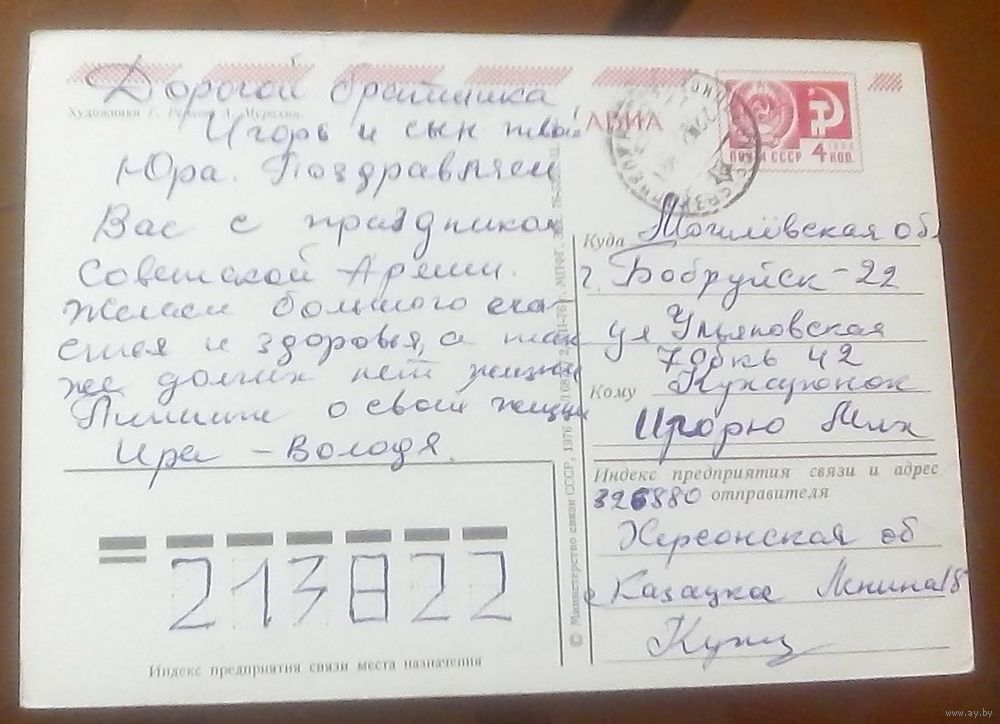 Дорогой братишка
Игорь и сын твой
Юра. Поздравляем
Вас с праздником
Советской Армии.
Желаем большого сча-
стья и здоровья, а так
же долгих лет жизни
Пишите о своей жизни
Ира - Володя.
Художники Е.
АВИА
ПОЧТА СССР 4 КОП. 1966
Куда Могилёвская об
г. Бобруйск - 22
ул Ульяновская
42
Кому
Игорю Мих
Индекс предприятия связи и адрес
отправителя
Херсонская об
с Казацкое Ленина 18
© Министерство связи СССР, 1976
213822
Индекс предприятия связи места назначения
www.ay.by